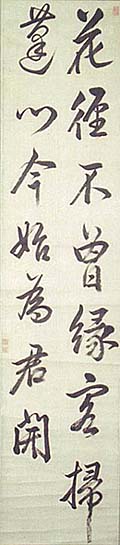 花徑不曽縁客掃
蓬門今始為君開